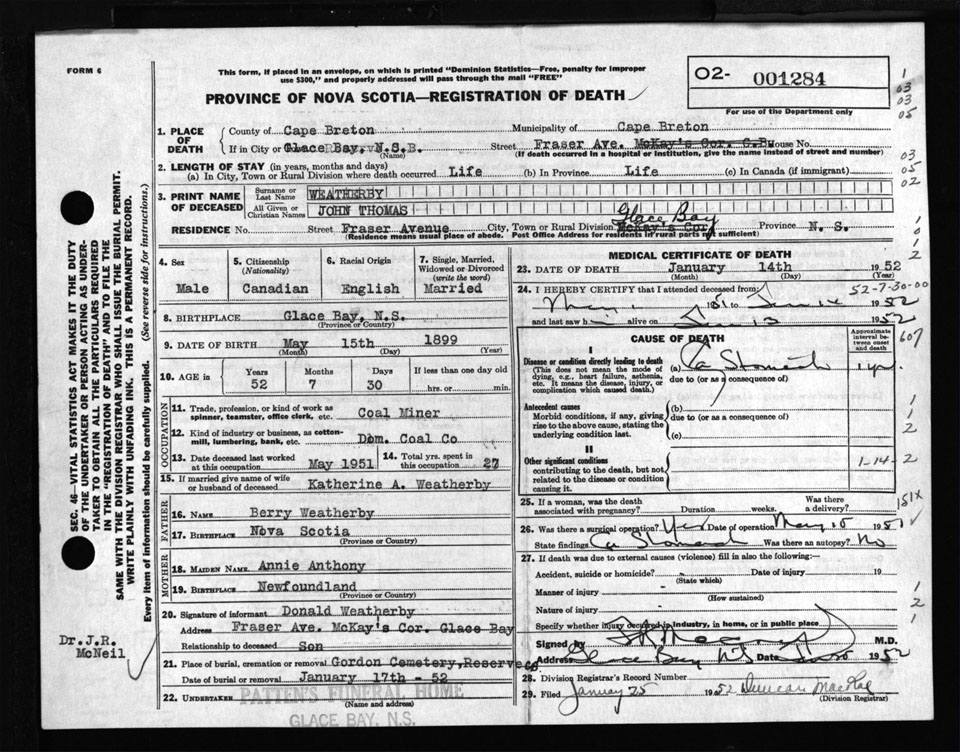 FORM 6
This form, if placed in an envelope, on which is printed "Dominion Statistics—Free, penalty for improper
use $300," and properly addressed will pass through the mail "FREE"
PROVINCE OF NOVA SCOTIA—REGISTRATION OF DEATH
O2- 001284
For use of the Department only
1
03
03
05
03
05
02
1. PLACE OF DEATH County of Cape Breton Municipality of Cape Breton
If in City or Glace Bay, N.S. (Name) Street Fraser Ave. McKay's Cor. C.B. House No.
(If death occurred in a hospital or institution, give the name instead of street and number)
2. LENGTH OF STAY (in years, months and days)
(a) In City, Town or Rural Division where death occurred Life (b) In Province Life (c) In Canada (if immigrant)
3. PRINT NAME OF DECEASED
Surname or Last Names WEATHERBY
All Given or Christian Names JOHN THOMAS
Glace Bay
RESIDENCE No. Street Fraser Avenue City, Town or Rural Division McKay's Cor Province N. S.
(Residence means usual place of abode. Post Office Address for residents in rural parts not sufficient)
4. Sex
Male
5. Citizenship
(Nationality)
Canadian
6. Racial Origin
English
7. Single, Married,
Widowed or Divorced
(write the word)
Married
8. BIRTHPLACE Glace Bay, N.S.
(Province or Country)
9. DATE OF BIRTH May 15th 1899
(Month) (Day) (Year)
10. AGE in Years Months Days If less than one day old
52 7 30 hrs. or min.
OCCUPATION
11. Trade, profession, or kind of work as
spinner, teamster, office clerk, etc. Coal Miner
12. Kind of industry or business, as cotton-
mill, lumbering, bank, etc. Dom. Coal Co
13. Date deceased last worked
at this occupation May 1951
14. Total yrs. spent in
this occupation 27
15. If married give name of wife
or husband of deceased Katherine A. Weatherby
FATHER
16. NAME Berry Weatherby
17. BIRTHPLACE Nova Scotia
(Province or Country)
MOTHER
18. MAIDEN NAME Annie Anthony
19. BIRTHPLACE Newfoundland
(Province or Country)
20. Signature of informant Donald Weatherby
Address Fraser Ave. McKay's Cor. Glace Bay
Relationship to deceased Son
21. Place of burial, cremation or removal Gordon Cemetery, Reserve
Date of burial or removal January 17th - 52
22. UNDERTAKER PATTEN'S FUNERAL HOME
(Name and address)
GLACE BAY, N.S.
MEDICAL CERTIFICATE OF DEATH
23. DATE OF DEATH January 14th 1952
(Month) (Day) (Year)
24. I HEREBY CERTIFY that I attended deceased from:
52-7-30-00
May 1951 to Jan 14 1952
and last saw h alive on Jan 13 1952
607
CAUSE OF DEATH
Approximate
interval be-
tween onset
and death
I
Disease or condition directly leading to death
(This does not mean the mode of
dying, e.g., heart failure, asthenia,
etc. It means the disease, injury, or
complication which caused death.)
(a) Ca Stomach 1 yr.
due to (or as a consequence of)
Antecedent causes
Morbid conditions, if any, giving
rise to the above cause, stating the
underlying condition last.
(b)
due to (or as a consequence of)
(c)
II
Other significant conditions
contributing to the death, but not
related to the disease or condition
causing it.
1-14-2
151X
25. If a woman, was the death
associated with pregnancy? Duration weeks. Was there
a delivery?
26. Was there a surgical operation? Yes Date of operation May 10 1951
State findings Ca Stomach Was there an autopsy? No
27. If death was due to external causes (violence) fill in also the following:—
Accident, suicide or homicide? Date of injury 19
(State which)
Manner of injury
(How sustained)
Nature of injury
Specify whether injury occurred in industry, in home, or in public place
Signed by M.D.
Address Glace Bay NS Date 1952
28. Division Registrar's Record Number
29. Filed January 25 1952 Duncan MacRae
(Division Registrar)
SEC. 46—VITAL STATISTICS ACT MAKES IT THE DUTY
OF THE UNDERTAKER OR PERSON ACTING AS UNDER-
TAKER TO OBTAIN ALL THE PARTICULARS REQUIRED
IN THE "REGISTRATION OF DEATH" AND TO FILE THE
SAME WITH THE DIVISION REGISTRAR WHO SHALL ISSUE THE BURIAL PERMIT.
WRITE PLAINLY WITH UNFADING INK. THIS IS A PERMANENT RECORD.
Every item of information should be carefully supplied. (See reverse side for instructions.)
Dr.J.R.
McNeil